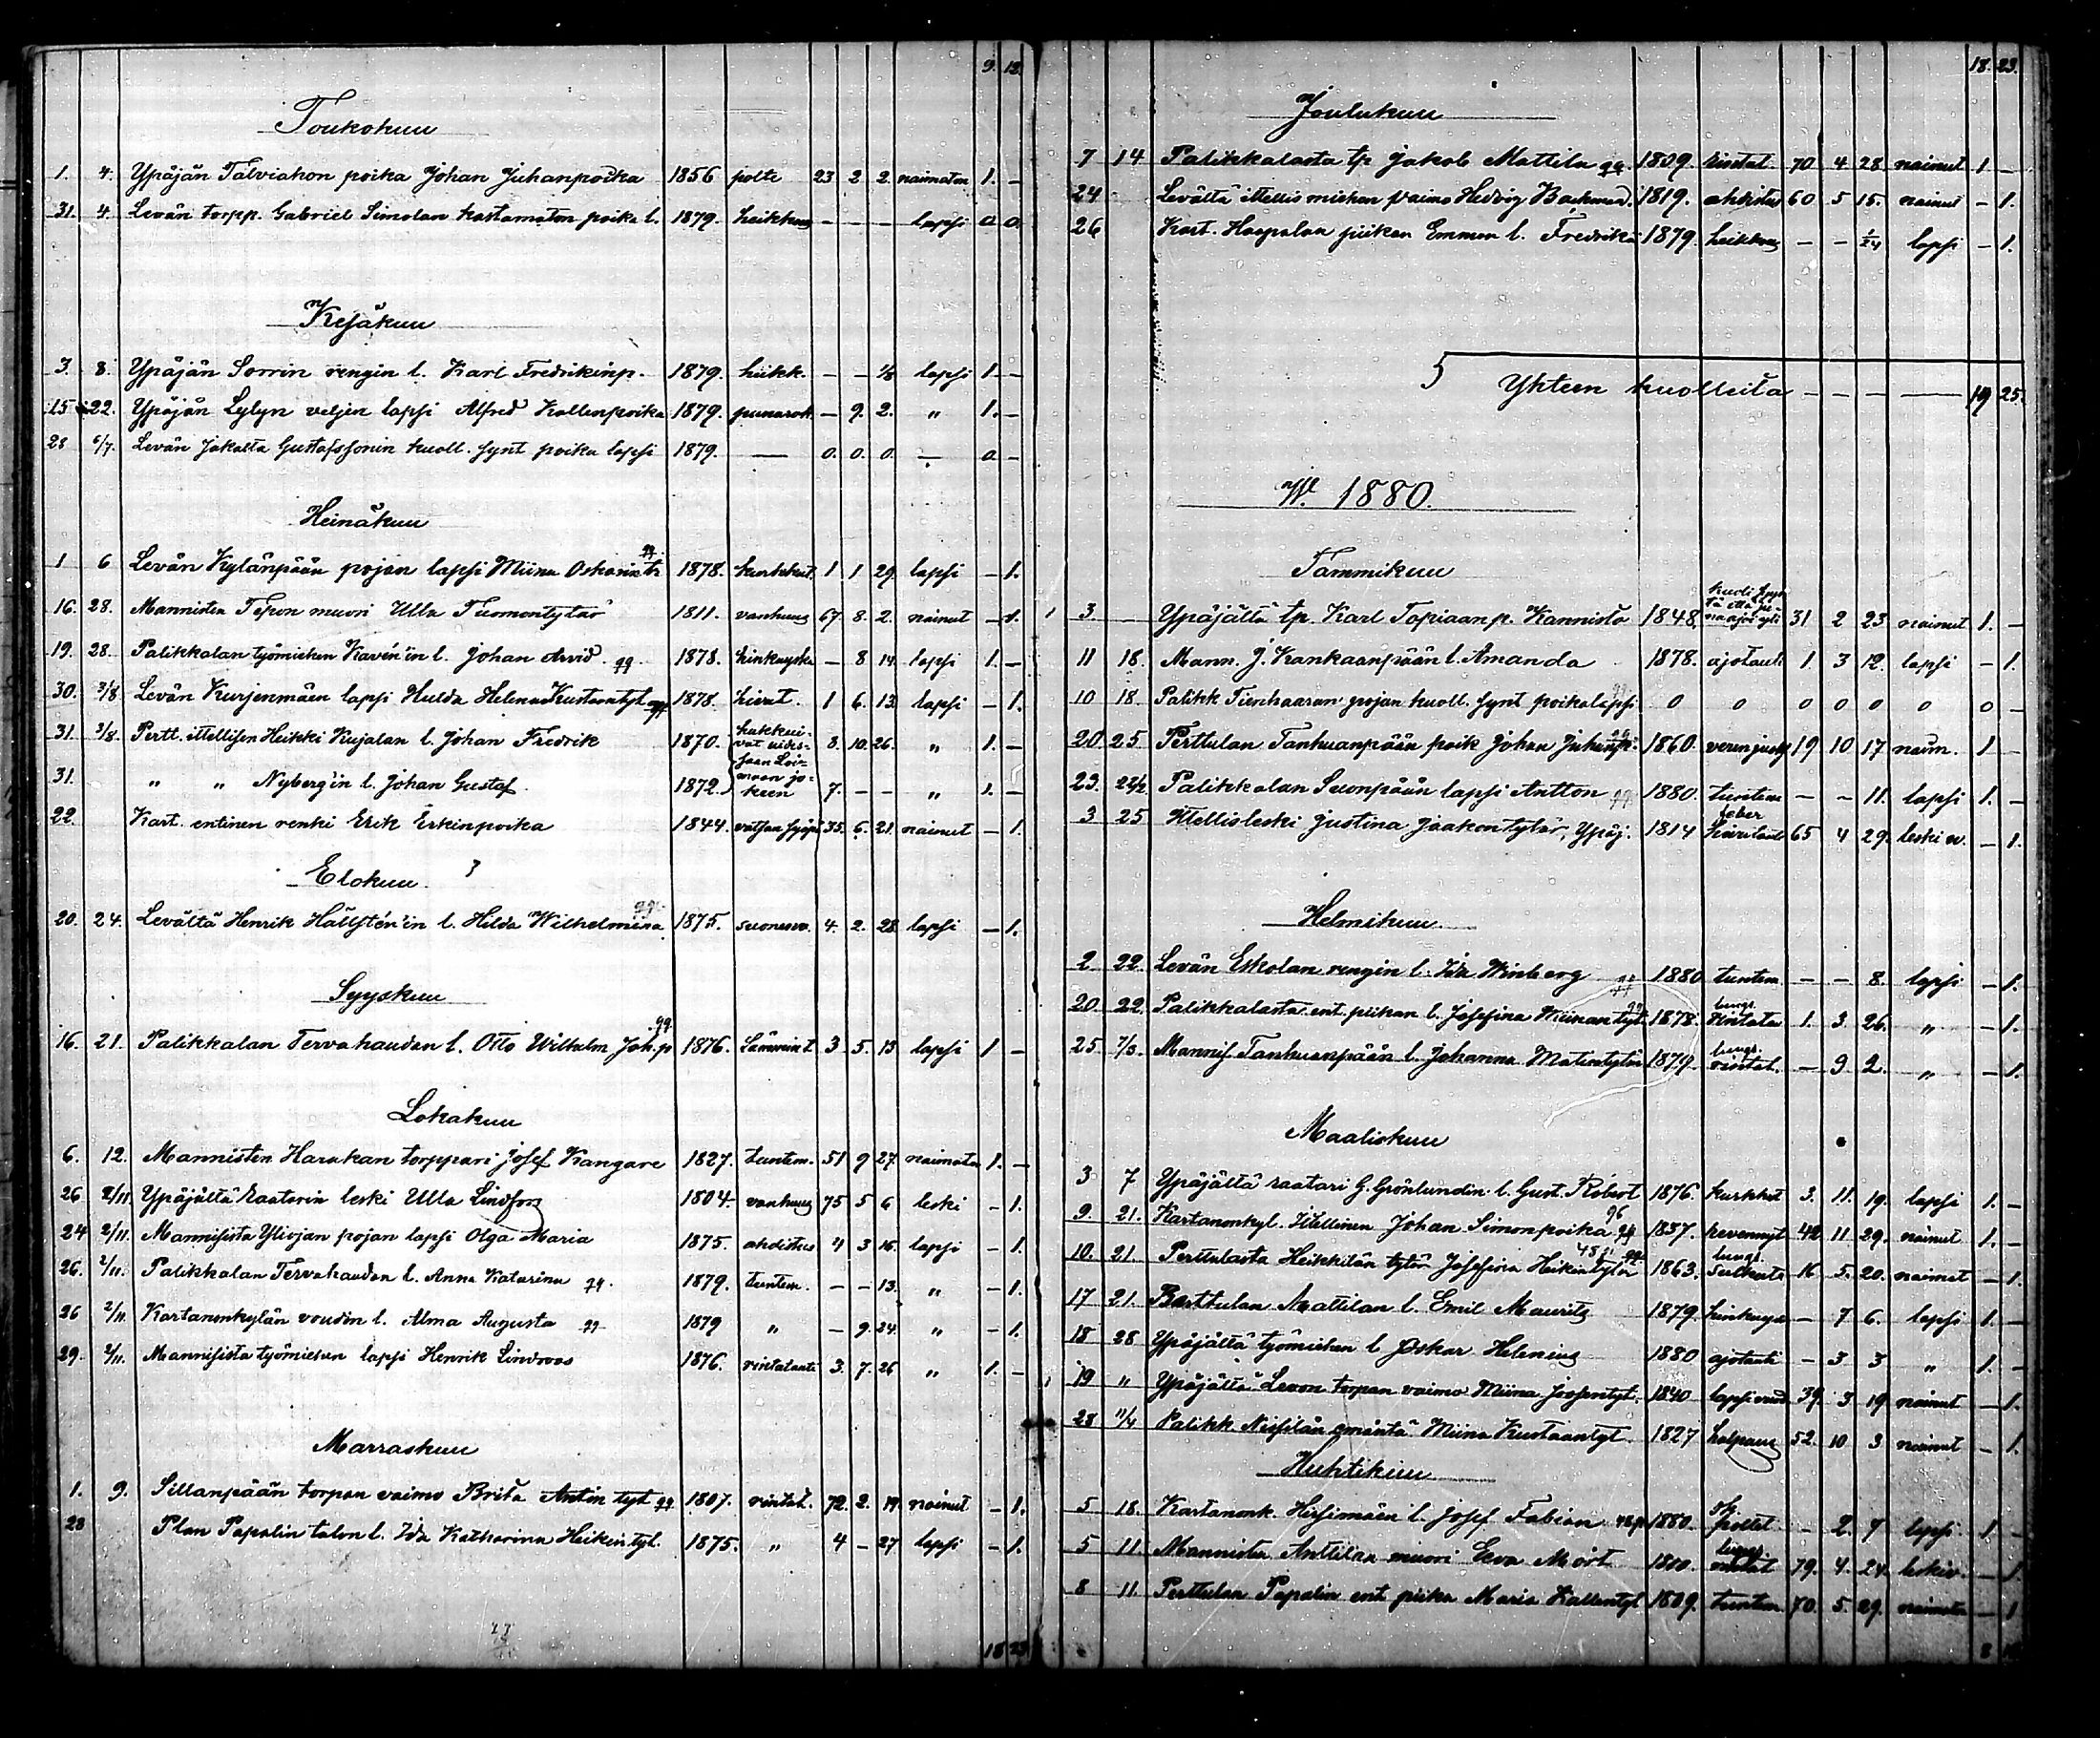 9. 13.
Toukokuu
1. 4. Ypäjän Talviahon poika Johan Juhanpoika 1856 polte 23 2 2. naimaton 1. —
31. 4. Levän torpp. Gabriel Simolan kastamaton poika l. 1879. heikkous — — — lapsi a a.
Kesäkuu
3. 8. Ypäjän Sorrin rengin l. Karl Fredrikinp. 1879. heikk. — — lapsi 1. —
15 22. Ypäjän Lylyn veljen lapsi Alfred Kallenpoika 1879. punarok — 9. 2. " 1. —
28 6/7. Levän Jakalta Gustafssonin kuoll. synt poika lapsi 1879. — 0. 0. 0. — a —
Heinäkuu
1 6 Levän Kylänpään pojan lapsi Miina Oskarintr 1878. kurkkut. 1 1 29. lapsi — 1.
16. 28. Mannisten Tepon muori Ulla Tuomontytär 1811. vanhuus 67. 8. 2. nainut — 1.
19. 28. Palikkalan työmiehen Kavén'in l. Johan Arvid qq. 1878. hinkuyskä — 8 14. lapsi 1. —
30. 3/8. Levän Kurjenmäen lapsi Hulda Helena Kustaantyt qq 1878. 1 6. 13. lapsi — 1.
31. 3/8. Pertt. itellisen Heikki Kujalan l. Johan Fredrik 1870. hukkui-
vat uides-
saan Loi-
maan jo-
keen 8. 10. 26. " 1. —
31. " " Nyberg'in l. Johan Gustaf 1872. 7. — — " 1. —
22. Kart. entinen renki Erik Erkinpoika 1844. vatsan syöpä 35. 6. 21. nainut — 1.
Elokuu
20. 24. Levältä Henrik Hällstén'in l. Hilda Wilhelmina 1875. suonenv. 4. 2. 28. lapsi — 1.
Syyskuu
16. 21. Palikkalan Tervahaudan l. Otto Wilhelm Joh.p qq. 1876. 3. 5. 13 lapsi 1 —
Lokakuu
6. 12. Mannisten Harakan torppari Josef Kangare 1827. tuntem. 51 9 27. naimaton 1. —
26 2/11. Ypäjältä Raatarin leski Ulla Lindfors 1804. vanhuus 75 5 6 leski — 1.
24 2/11. Mannisista Yliojan pojan lapsi Olga Maria 1875. ahdistus 4 3 16. lapsi — 1.
26. 2/11. Palikkalan Tervahaudan l. Anna Katarina qq. 1879. tuntem. — — 13. " — 1.
26 2/11. Kartanonkylän voudin l. Alma Augusta qq 1879 " — 9. 24. " — 1.
29. 2/11. Mannisista työmiehen lapsi Henrik Lindroos 1876. rintatauti 3. 7. 26 " 1. —
Marraskuu
1. 9. Sillanpään torpan vaimo Brita Antin tyt qq 1807. rintat. 72. 2. 19. nainut — 1.
28 Plan Papalin talon l. Ida Katharina Heikintyt. 1875. " 4 — 27 lapsi — 1.
18 23
18. 23.
Joulukuu
7 14 Palikkalasta tp Jakob Mattila qq. 1809. rintat. 70 4 28. nainut 1 —
24 Levältä itellismiehen vaimo Hedvig Backman. 1819. ahdistus 60 5 15. nainut — 1.
26 Kart. Haapalan piikan Emman l. Fredrika 1879. heikkous — — 1/24 lapsi — 1.
Yhteen kuolleita — — — — 19 25.
W. 1880.
Tammikuu
3. — Ypäjältä tp. Karl Topiaanp. Kannisto 1848. 31 2 23 nainut 1. —
11 18. Mann. J. Kankaanpään l. Amanda 1878. ajotauti 1. 3 12. lapsi — 1.
10 18. Palikk Tienhaaran pojan kuoll. synt poikalapsi 0 0 0 0 0 0 0 —
20 25 Perttulan Tanhuanpään poik Johan Juhanp. 1860. verenjuoks 19 10 17 naim. 1 —
23. Palikkalan Suonpään lapsi Antton qq. 1880. tuntem — — 11. lapsi 1. —
3 25 Itellisleski Justina Jaakontytär, Ypäj. 1814 feber 65 4 29. leski v. — 1.
Helmikuu
2 22. Levän Eskolan rengin l. Ida Winberg qq 1880 tuntem — — 8. lapsi — 1.
20. 22. Palikkalasta ent. piikan l. Josefina Miinan tyt. 1878. lungs. rintata 1. 3. 26. " — 1.
25 7/3. Mannis. Tanhuanpään l. Johanna Matintytär 1879. lungs. rintat. — 9 2. " — 1.
Maaliskuu
3 7 Ypäjältä raatari G. Grönlundin l. Gust. Robert 1876. kurkkut 3. 11. 19. lapsi 1. —
9. 21. Kartanonkyl. Itellinen Johan Simonpoika qq 1837. 42 11 29. nainut 1. —
10. 21. Perttulasta Heikkilän tytär Josefina Heikintytär 1863. lungs. 16 5. 20. naimat — 1.
17 21. Perttulan Mattilan l. Emil Mauritz 1879. hinkuys — 7 6. lapsi 1. —
18 28 Ypäjältä työmiehen l Oskar Helenius 1880 ajotauti — 3 3 " 1. —
19 " Ypäjältä Levon torpan vaimo Miina Joosentyt. 1840 lapsivuod 39. 3 19 nainut — 1.
28 11/4 Palikk Nissilän emäntä Miina Kustaantyt 1827 halpaus 52. 10 3 nainut — 1.
Huhtikuu
5 18. Kartanonk. Hirsimäen l. Josef Fabian 1880. poltet — 2. 7 lapsi 1 —
5 11 Mannista Anttilan muori Eeva Mört 1810. lungs. rintat 79. 4. 24. leskiv. — 1
8 11. Perttulan Papalin ent piika Maria Kallentyt 1809. tuntem 70. 5. 29. naimaton — 1
8